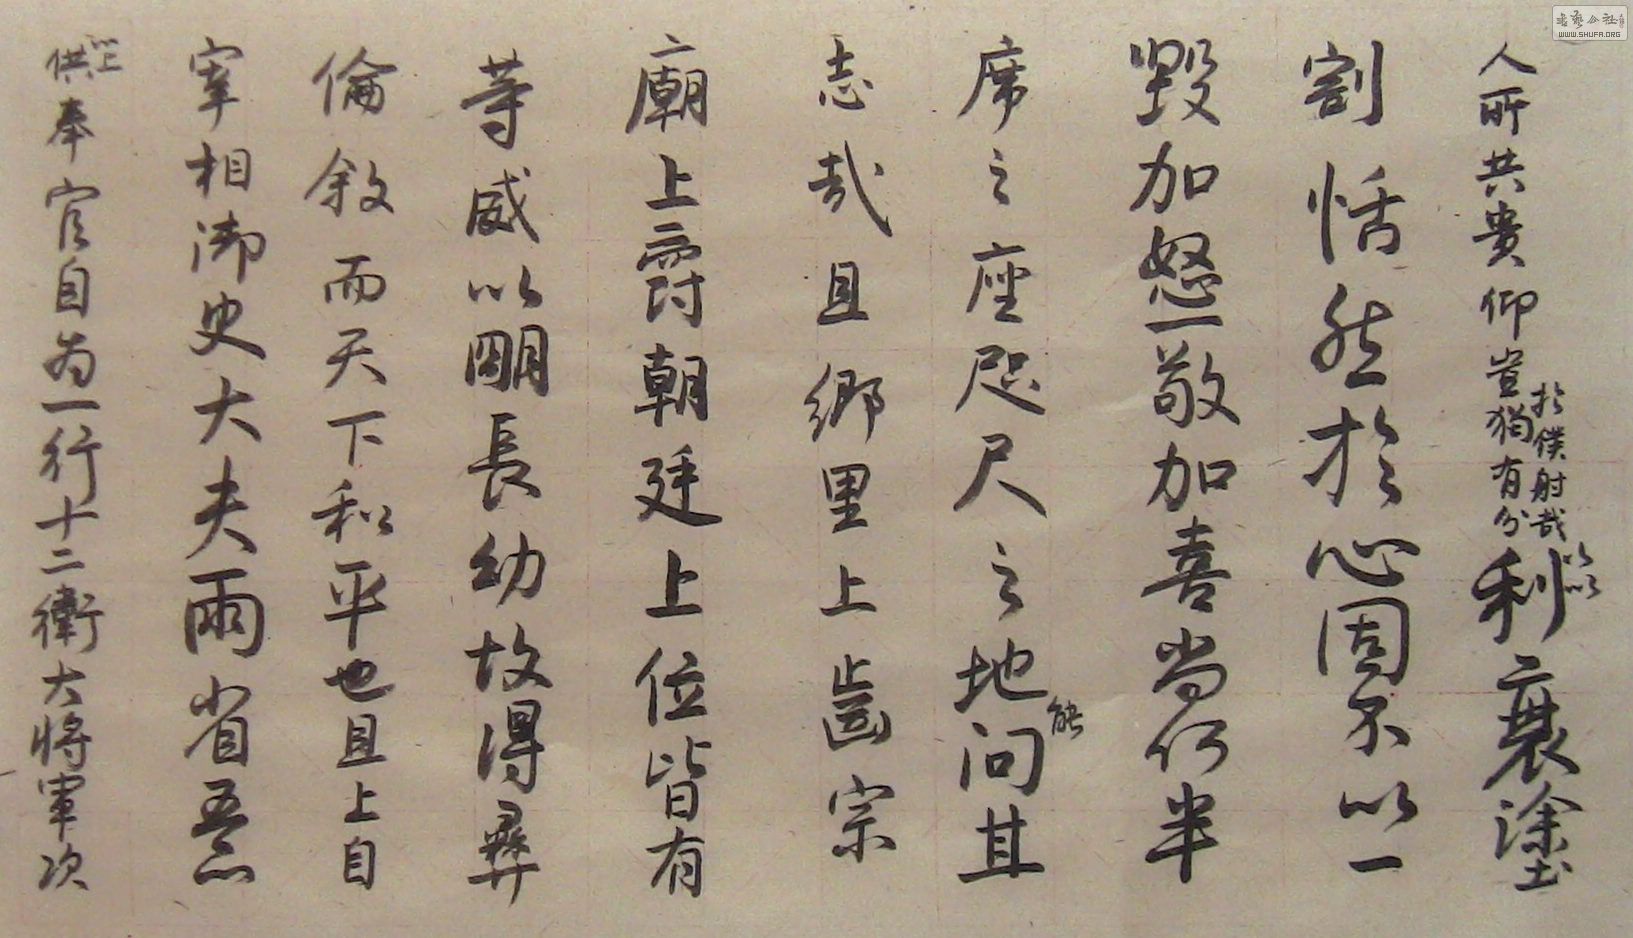 人所共貴仰豈獨有分於僕射哉加以利衰塗
割恬然於心固不以一
毀加怒一敬加喜尚何半
席之座咫尺之地能汨其
志哉且鄉里上齒宗
廟上爵朝廷上位皆有
等威以明長幼故得彝
倫敘而天下和平也且上自
宰相御史大夫兩省五品
以上供奉官自為一行十二衛大將軍次
書藝公社
WWW.SHUFA.ORG